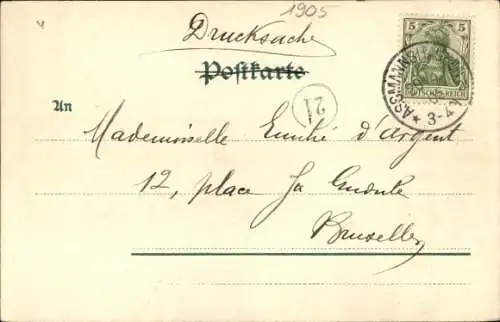 1905
Drucksache
Postkarte
5 5
DEUTSCHES REICH
ASSMANNSHAUSEN
* 3-4
21
An
Mademoiselle Emké d'Argent
12, place Ste Gudule
Bruxelles